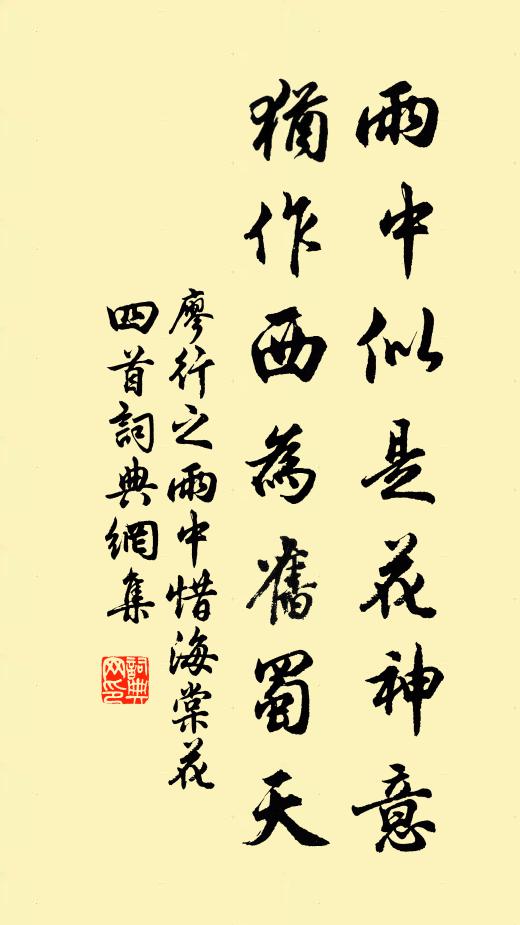 雨中似是花神意
猶作西為舊蜀天
廖行之雨中惜海棠花
四首詞典網集